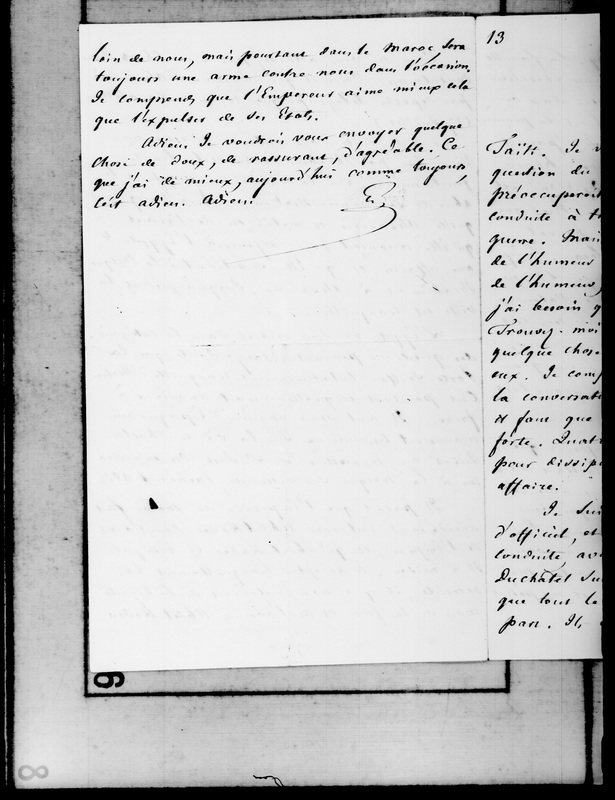 loin de nous, mais pourtant dans le Maroc, sera
toujours une arme contre nous dans l'occasion.
Je comprends que l'Empereur aime mieux cela
que l'expulser de ses Etats.
Adieu. Je voudrois vous envoyer quelque
chose de doux, de rassurant, d'agréable. Ce
que j'ai de mieux, aujourd'hui comme toujours,
c'est adieu. Adieu.
G
13
Taïti. Je
question du
préoccuperoit
conduite à
guerre. Mais
de l'humeur
de l'humeur,
j'ai besoin
Trouvez-moi
quelque chose
eux. Je
la conversati
il faut que
forte.
pour dissip
affaire.
Je
d'officiel, et
conduite, av
Duchâtel
que tout le
part. Il
9
8